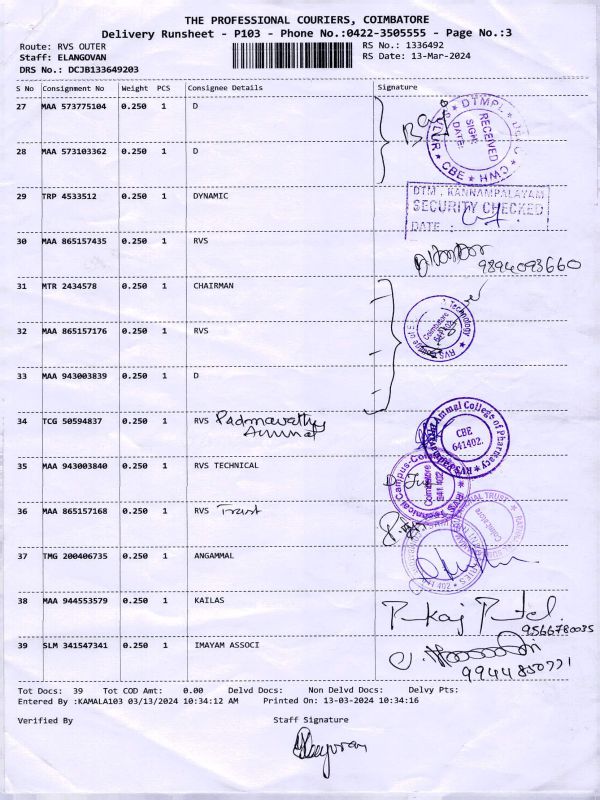 THE PROFESSIONAL COURIERS, COIMBATORE
Delivery Runsheet - P103 - Phone No.:0422-3505555 - Page No.:3
Route: RVS OUTER RS No.: 1336492
Staff: ELANGOVAN RS Date: 13-Mar-2024
DRS No.: DCJB133649203
S No Consignment No Weight PCS Consignee Details Signature
27 MAA 573775104 0.250 1 D
DTMPL
RECEIVED
SIGN:
DATE:
CWH ★ CBE ★
28 MAA 573103362 0.250 1 D
29 TRP 4533512 0.250 1 DYNAMIC
DTM, KANNAMPALAYAM
SECURITY CHECKED
DATE :
30 MAA 865157435 0.250 1 RVS
9894093660
31 MTR 2434578 0.250 1 CHAIRMAN
32 MAA 865157176 0.250 1 RVS
Technology ★ RVS
Coimbatore
33 MAA 943003839 0.250 1 D
34 TCG 50594837 0.250 1 RVS Padmavathy
Ammal
Ammal College of Pharmacy ★ RVS
CBE
641402.
35 MAA 943003840 0.250 1 RVS TECHNICAL
Technical Campus-Coimbatore
Coimbatore
641 402
36 MAA 865157168 0.250 1 RVS Trust
TRUST
Coimbatore
37 TMG 200406735 0.250 1 ANGAMMAL
641 402
38 MAA 944553579 0.250 1 KAILAS
Pankaj Patel.
9566780035
39 SLM 341547341 0.250 1 IMAYAM ASSOCI
9944850771
Tot Docs: 39 Tot COD Amt: 0.00 Delvd Docs: Non Delvd Docs: Delvy Pts:
Entered By :KAMALA103 03/13/2024 10:34:12 AM Printed On: 13-03-2024 10:34:16
Verified By Staff Signature